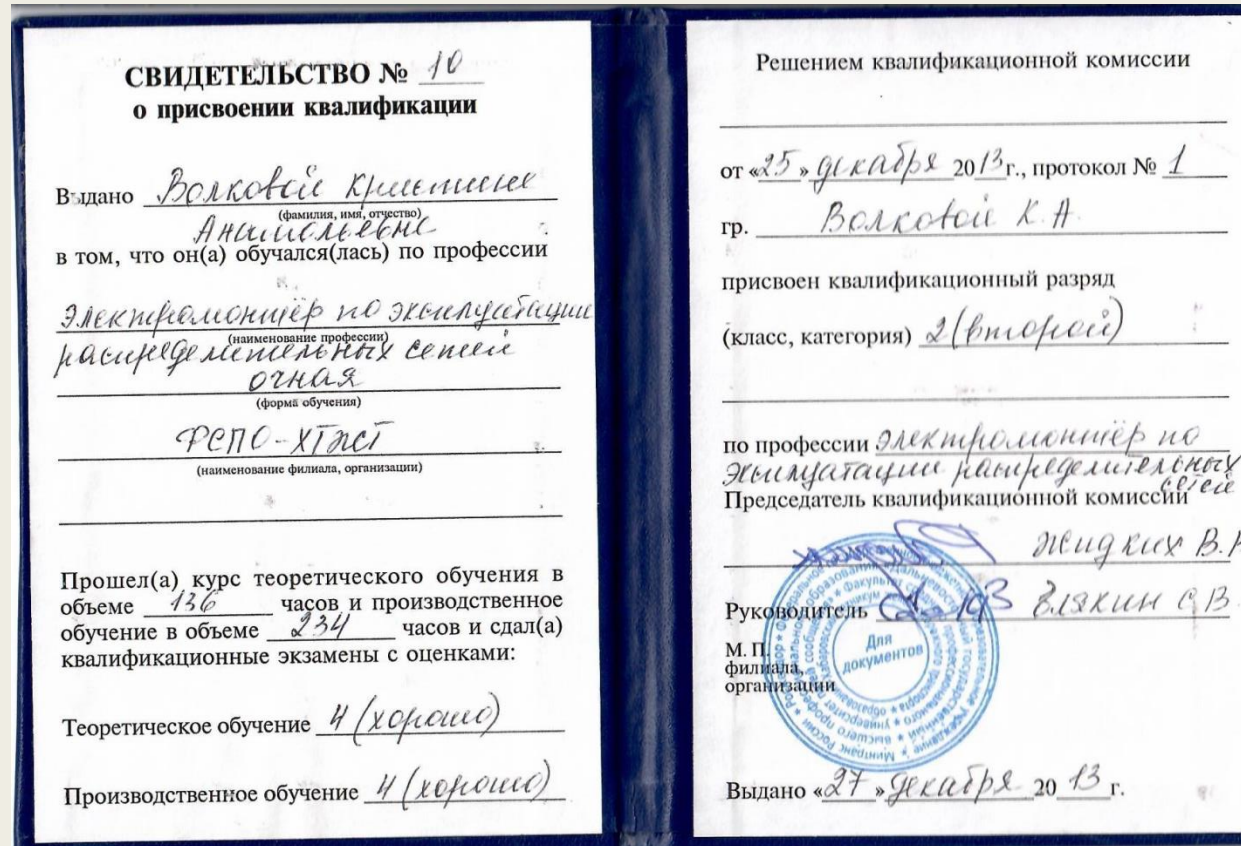 СВИДЕТЕЛЬСТВО № 10
о присвоении квалификации
Выдано Волковой Кристине
(фамилия, имя, отчество)
Анатольевне
в том, что он(а) обучался(лась) по профессии
Электромонтёр по эксплуатации
(наименование профессии)
распределительных сетей
очная
(форма обучения)
ФСПО-ХТЖТ
(наименование филиала, организации)
Прошел(а) курс теоретического обучения в
объеме 136 часов и производственное
обучение в объеме 234 часов и сдал(а)
квалификационные экзамены с оценками:
Теоретическое обучение 4 (хорошо)
Производственное обучение 4 (хорошо)
Решением квалификационной комиссии
от «25» декабря 2013 г., протокол № 1
гр. Волковой К.А.
присвоен квалификационный разряд
(класс, категория) 2 (второй)
по профессии Электромонтёр по
эксплуатации распределительных
сетей
Председатель квалификационной комиссии
Жидких В.
Руководитель С.В.
М. П.
филиала,
организации
Для
документов
Выдано «27» декабря 2013 г.